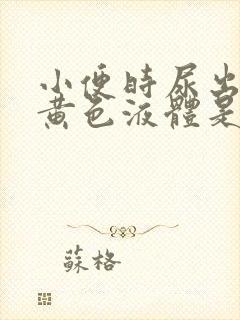 小便時尿出
黃色液體是
蘇格